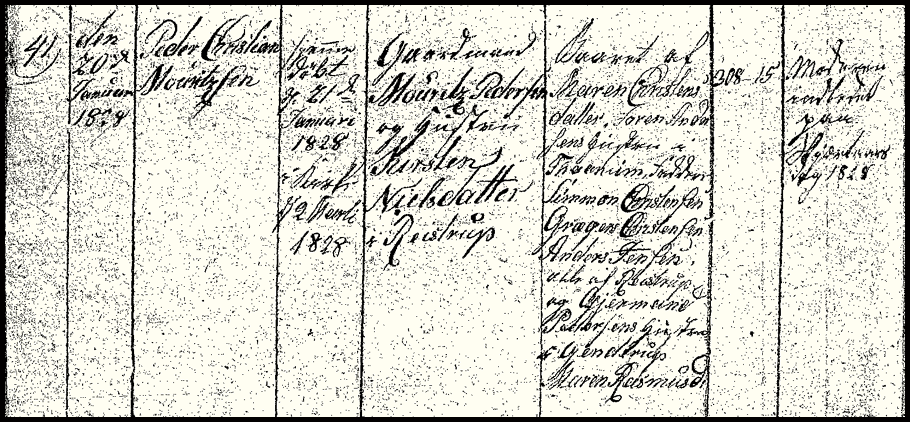 4)
den
20d
Januar
1828
Peder Christian
Mouritzsen
hjemme
døbt
d. 21d
Januari
1828
i Kirke
d 2 Martz
1828
Gaardmand
Mouritz Pedersen
og Hustru
Kirsten
Nielsdatter
i Reistrup
Baaret af
Maren Christens
datter, Soren Ander
sens Hustru i
Thranium, Faddere
Simmon Christensen
Gragers Christensen
Anders Jensen
alle af Reistrup
og
Pedersens Hustru
i Gendtrup
Maren Rasmusd.
308-15
Moderen
indledt
paa
Skjærtors
dag 1828